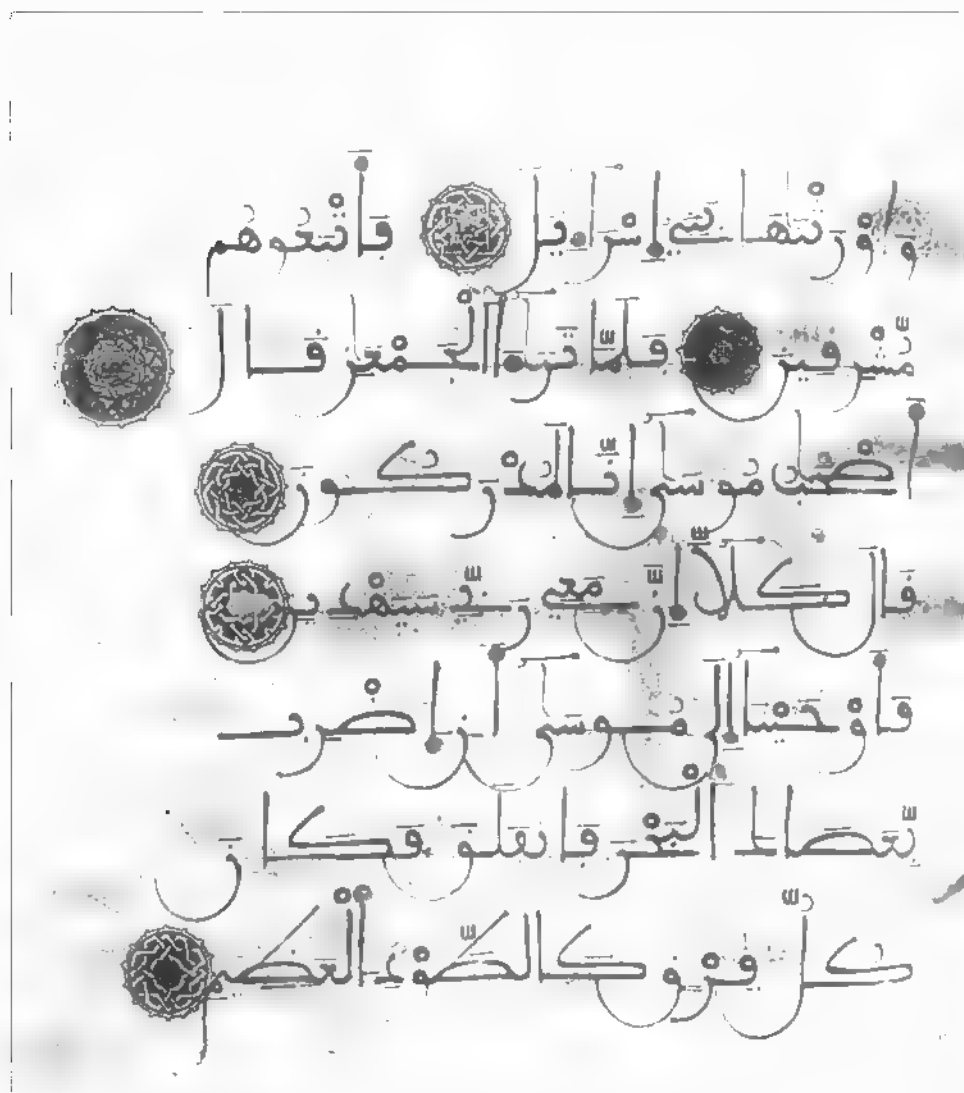 وَأَوْرَثْنَٰهَا بَنِىٓ إِسْرَٰٓءِيلَ فَأَتْبَعُوهُم
مُّشْرِقِينَ فَلَمَّا تَرَٰٓءَا اَلْجَمْعَٰنِ قَالَ
أَصْحَٰبُ مُوسَىٰٓ إِنَّا لَمُدْرَكُونَ
قَالَ كَلَّآ إِنَّ مَعِى رَبِّى سَيَهْدِينِ
فَأَوْحَيْنَآ إِلَىٰ مُوسَىٰٓ أَنِ اِضْرِب
بِّعَصَاكَ اَلْبَحْرَ فَانفَلَقَ فَكَانَ
كُلُّ فِرْقٍ كَالطَّوْدِ اِلْعَظِيمِ